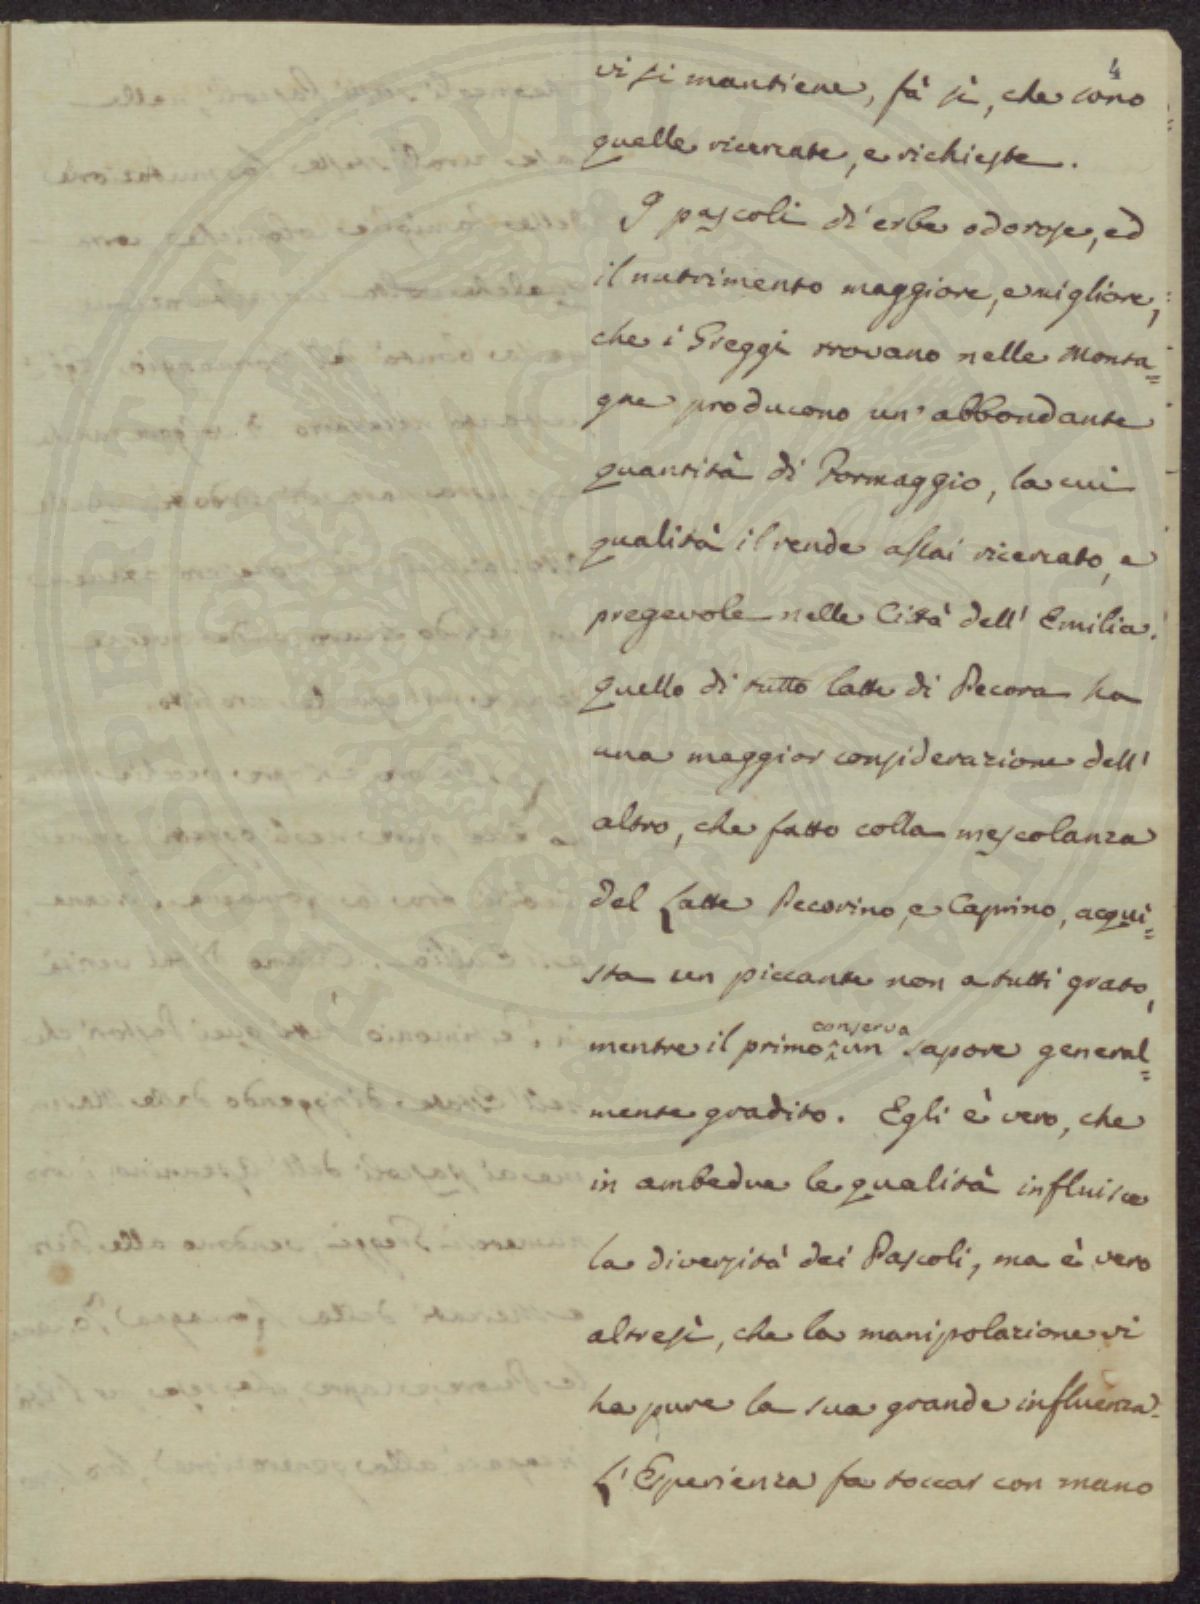 4
vi si mantiene, fà sì, che sono
quelle ricercate, e richieste.
I pascoli d'erbe odorose, ed
il nutrimento maggiore, e migliore,
che i Greggi trovano nelle Monta=
gne producono un' abbondante
quantità di Formaggio, la cui
qualità il rende assai ricercato, e
pregevole nelle Città dell' Emilia.
Quello di tutto latte di Pecora ha
una maggior considerazione dell'
altro, che fatto colla mescolanza
del Latte Pecorino, e Caprino, acqui=
sta un piccante non a tutti grato,
mentre il primo conserva un sapore general=
mente gradito. Egli è vero, che
in ambedue le qualità influisce
la diversità dei Pascoli, ma è vero
altresì, che la manipolazione vi
ha pure la sua grande influenza.
L'Esperienza fa toccar con mano